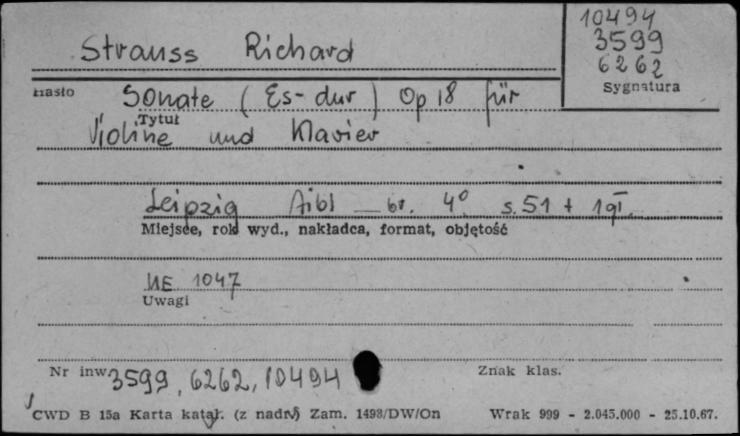 10494
Strauss Richard 3599
6262
Sygnatura
Hasło Sonate (Es-dur) Op 18 für
Tytuł
Violine und Klavier
Leipzig Aibl — br. 4° s. 51 + 19I.
Miejsce, rok wyd., nakładca, format, objętość
UE 1047
Uwagi
Nr inw. 3599, 6262, 10494 Znak klas.
CWD B 15a Karta katal. (z nadr.) Zam. 1493/DW/On Wrak 999 - 2.045.000 - 25.10.67.